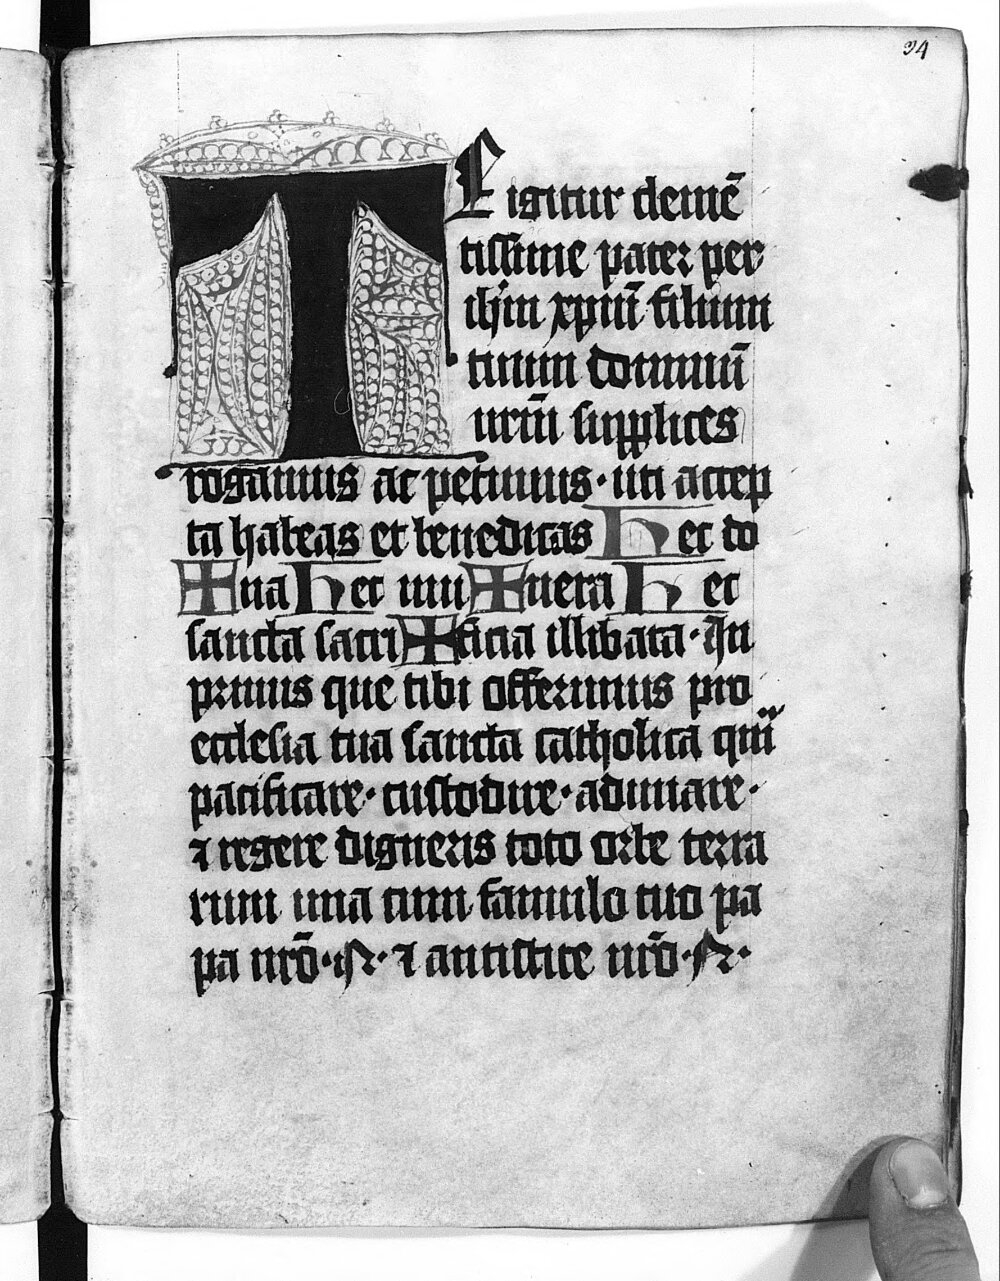 94
TE igitur clemē
tissime pater per
ihm xpm̄ filium
tuum dominū
nrm̄ supplices
rogamus ac petimus · uti accep
ta habeas et benedicas Hec do
✠na Hec mu✠nera Hec
sancta sacri✠ficia illibata · In
primis que tibi offerimus pro
ecclesia tua sancta catholica quā
pacificare · custodire · adunare ·
⁊ regere digneris toto orbe terra
rum una cum famulo tuo pa
pa nrō · N · ⁊ antistite nrō · N ·